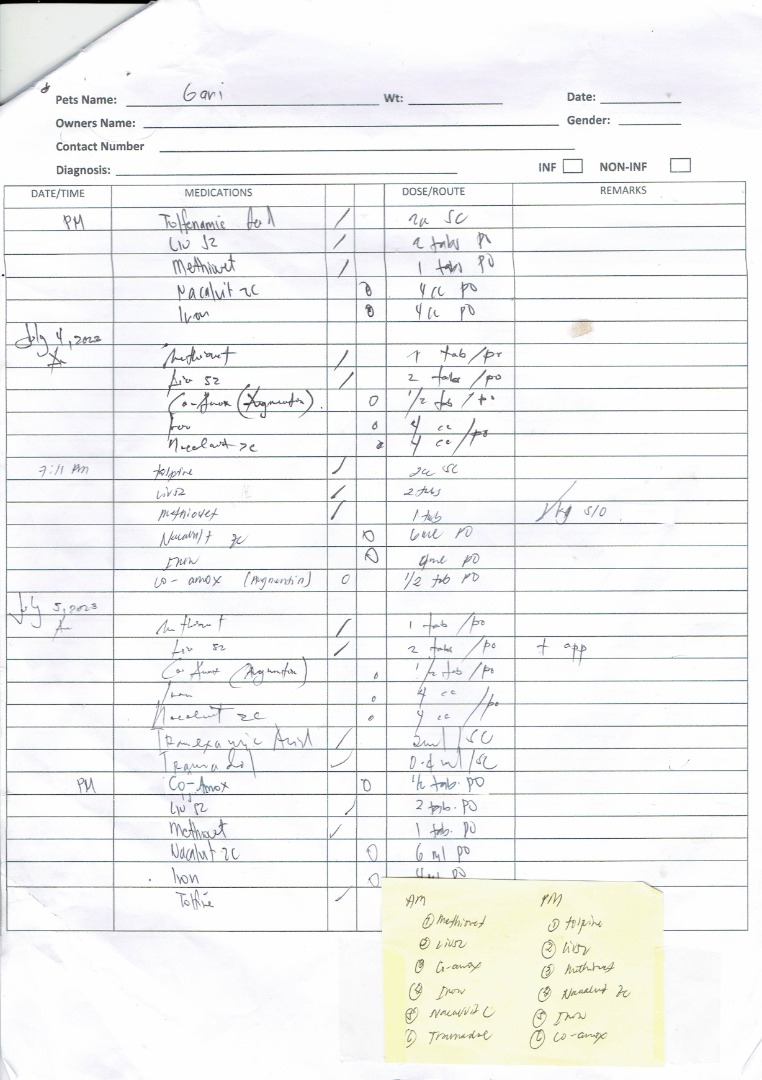 Pets Name: Gari Wt: Date:
Owners Name: Gender:
Contact Number
Diagnosis: INF NON-INF
DATE/TIME MEDICATIONS DOSE/ROUTE REMARKS
PM Tolfenamic Acid / 2cc SC
Liv 52 / 2 tabs PO
Methiovet / 1 tabs PO
Nacalvit zc 4 cc PO
Iron 4 cc PO
July 4, 2023
Methiovet / 1 tab /po
Liv 52 / 2 tabs /po
Co-Amox (Augmentin) 0 1/2 tab / po
Iron 0 4 cc
Nacalvit zc 4 cc /po
7:11 PM tolpine / 2cc SC
Liv52 / 2 tabs
Methiovet / 1 tab S/O
Nacalvit zc 0 6ml PO
Iron 0 4ml PO
co-amox (Augmentin) 0 1/2 tab PO
July 5, 2023
Methiovet / 1 tab /po
Liv 52 / 2 tabs /po + app
Co-Amox (Augmentin) 0 1/2 tab /po
Iron 0 4 cc
Nacalvit zc 0 4 cc /po
Tranexamic Acid / 2ml /SC
Tramadol / 0.4 ml /SC
PM Co-Amox 0 1/2 tab. PO
Liv 52 / 2 tab. PO
Methiovet / 1 tab. PO
Nacalvit zc 0 6 ml PO
Iron 0 4ml PO
Tolfine /
AM PM
① Methiovet ① tolpine
② Liv52 ② Liv52
③ Co-amox ③ Methiovet
④ Iron ④ Nacalvit zc
⑤ Nacalvit C ⑤ Iron
⑥ Tramadol ⑥ co-amox